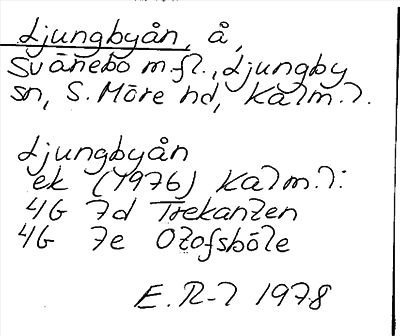 Ljungbyån, å,
Svånebo m.fl., Ljungby
sn, S. Möre hd, Kalm. l.
Ljungbyån
ek (1976) Kalm. l:
4G 7d Trekanten
4G 7e Olofsbo̊le
E. R-l 1978